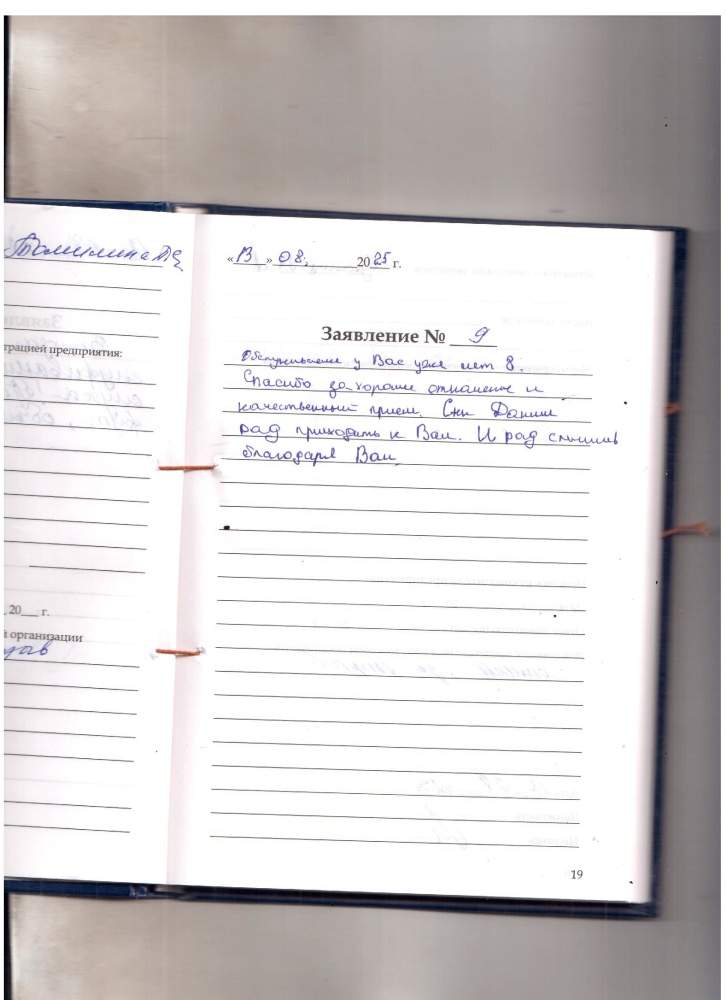 «13» 08. 2025 г.
Заявление № 9
Обслуживаемся у Вас уже лет 8.
Спасибо за хорошие отношение и
качественный прием. Сын Данил
рад приходить к Вам. И рад слышать
благодаря Вам
трацией предприятия:
20 г.
й организации
19